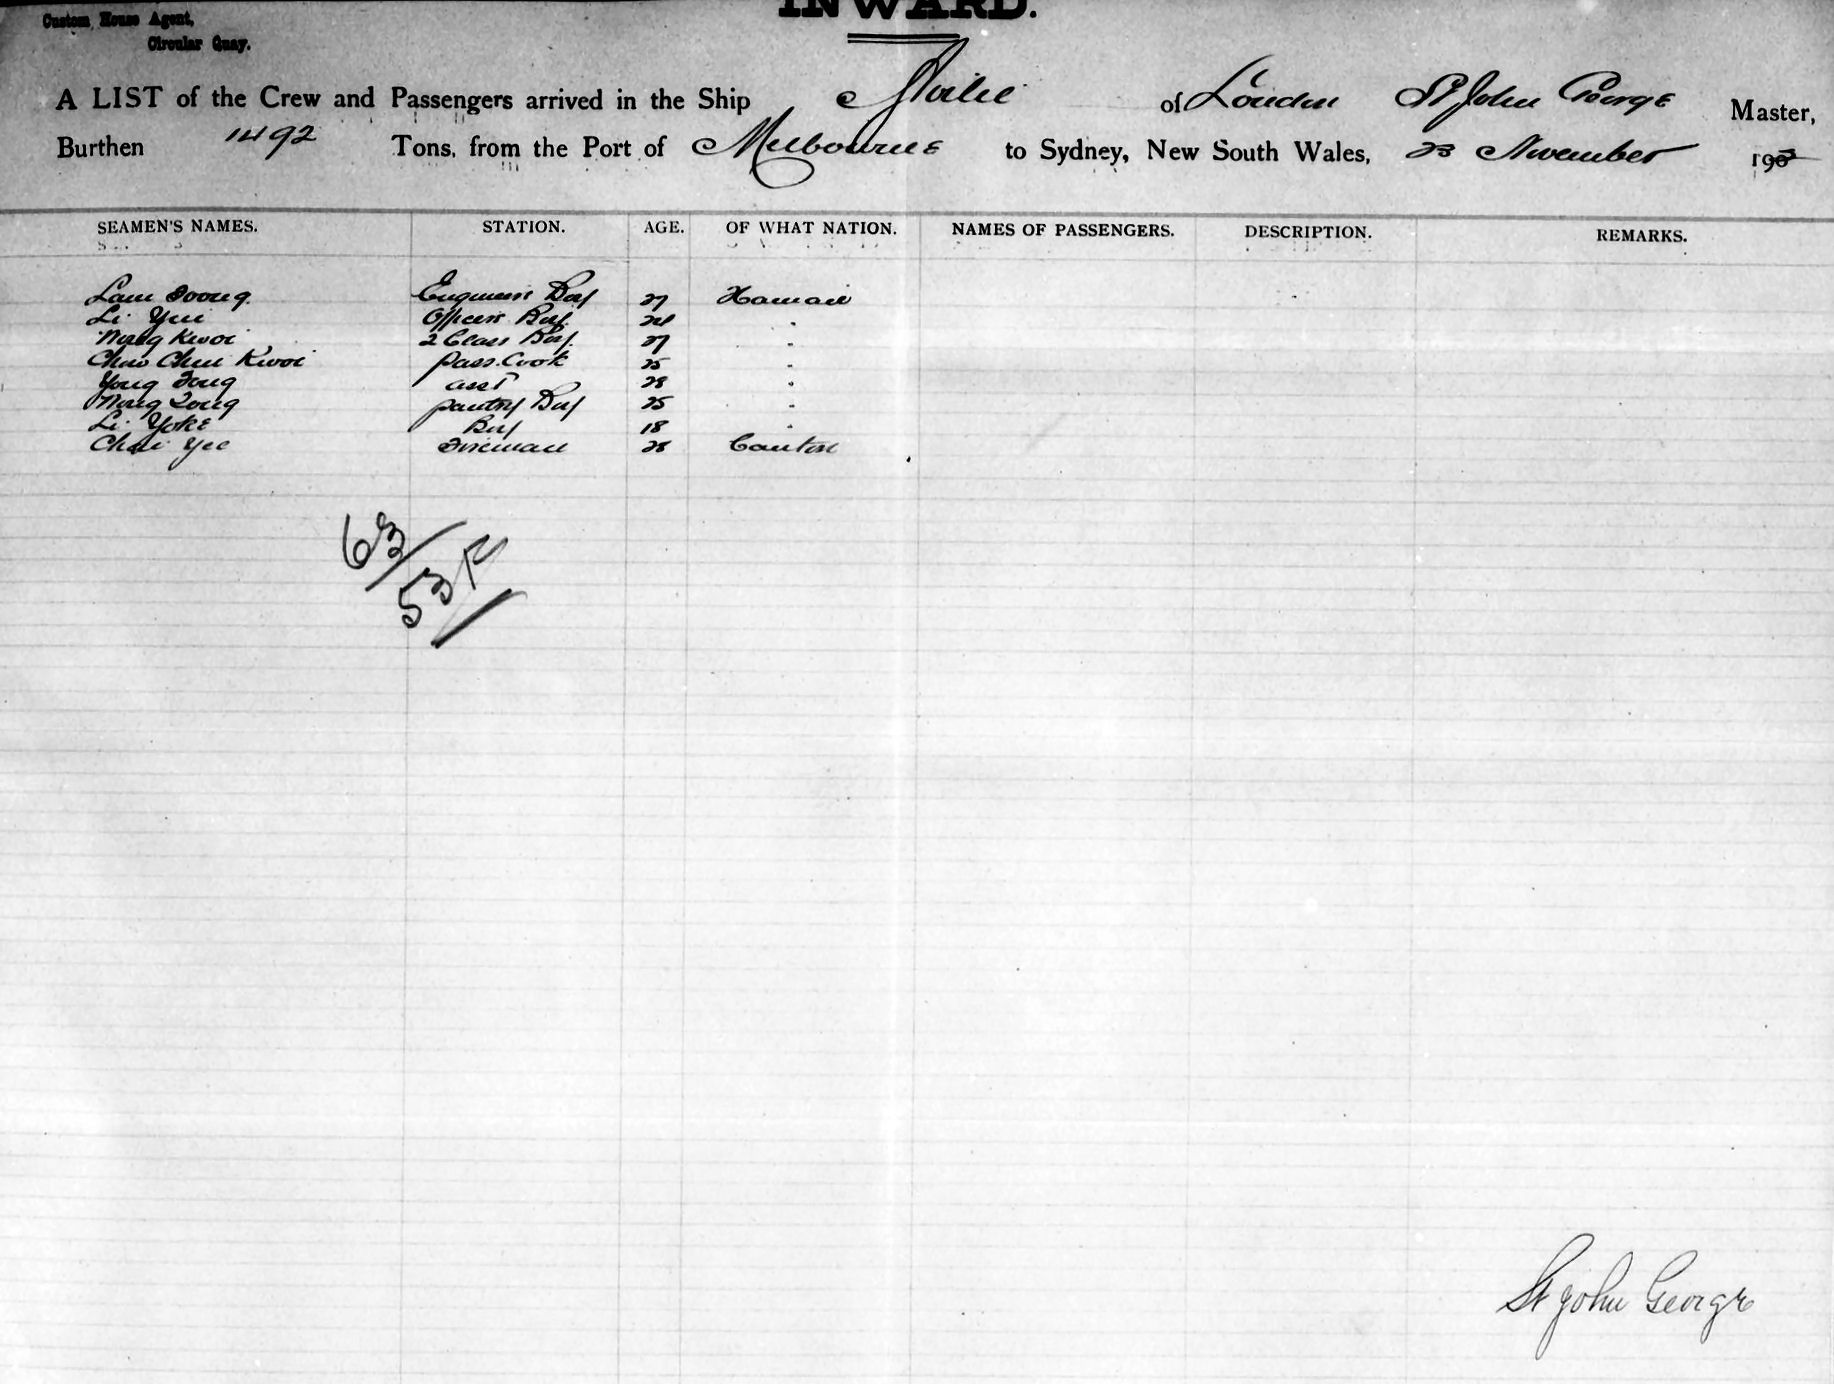 INWARD.
Custom House Agent,
Circular Quay.
A LIST of the Crew and Passengers arrived in the Ship of London St John George Master,
Burthen 1492 Tons, from the Port of Melbourne to Sydney, New South Wales, 23 November 190
SEAMEN'S NAMES. STATION. AGE. OF WHAT NATION. NAMES OF PASSENGERS. DESCRIPTION. REMARKS.
Lam Engineers Boy 27 Hainan
Li Yui Officers Boy 24 "
Kwoi 2 Class Boy 27 "
Chow Chui Kwoi Pass. Cook 25 "
Yong Fong asst 28 "
Fong pantry Boy 25 "
Li Yoke Boy 18 "
Yee Fireman 28 Canton
63/
53
St John George